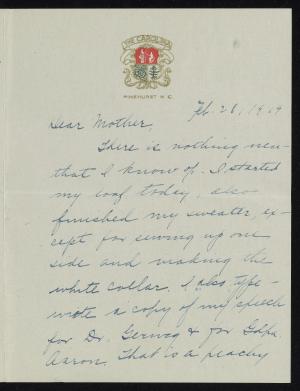 THE CAROLINA
PINEHURST N.C.
Feb. 26, 1919
Dear Mother,
There is nothing new
that I know of. I started
my loaf today, also
finished my sweater, ex-
cept for sewing up one
side and making the
white collar. I also type-
wrote a copy of my speech
for Dr. & for Gdpa.
Aaron. That is a peachy